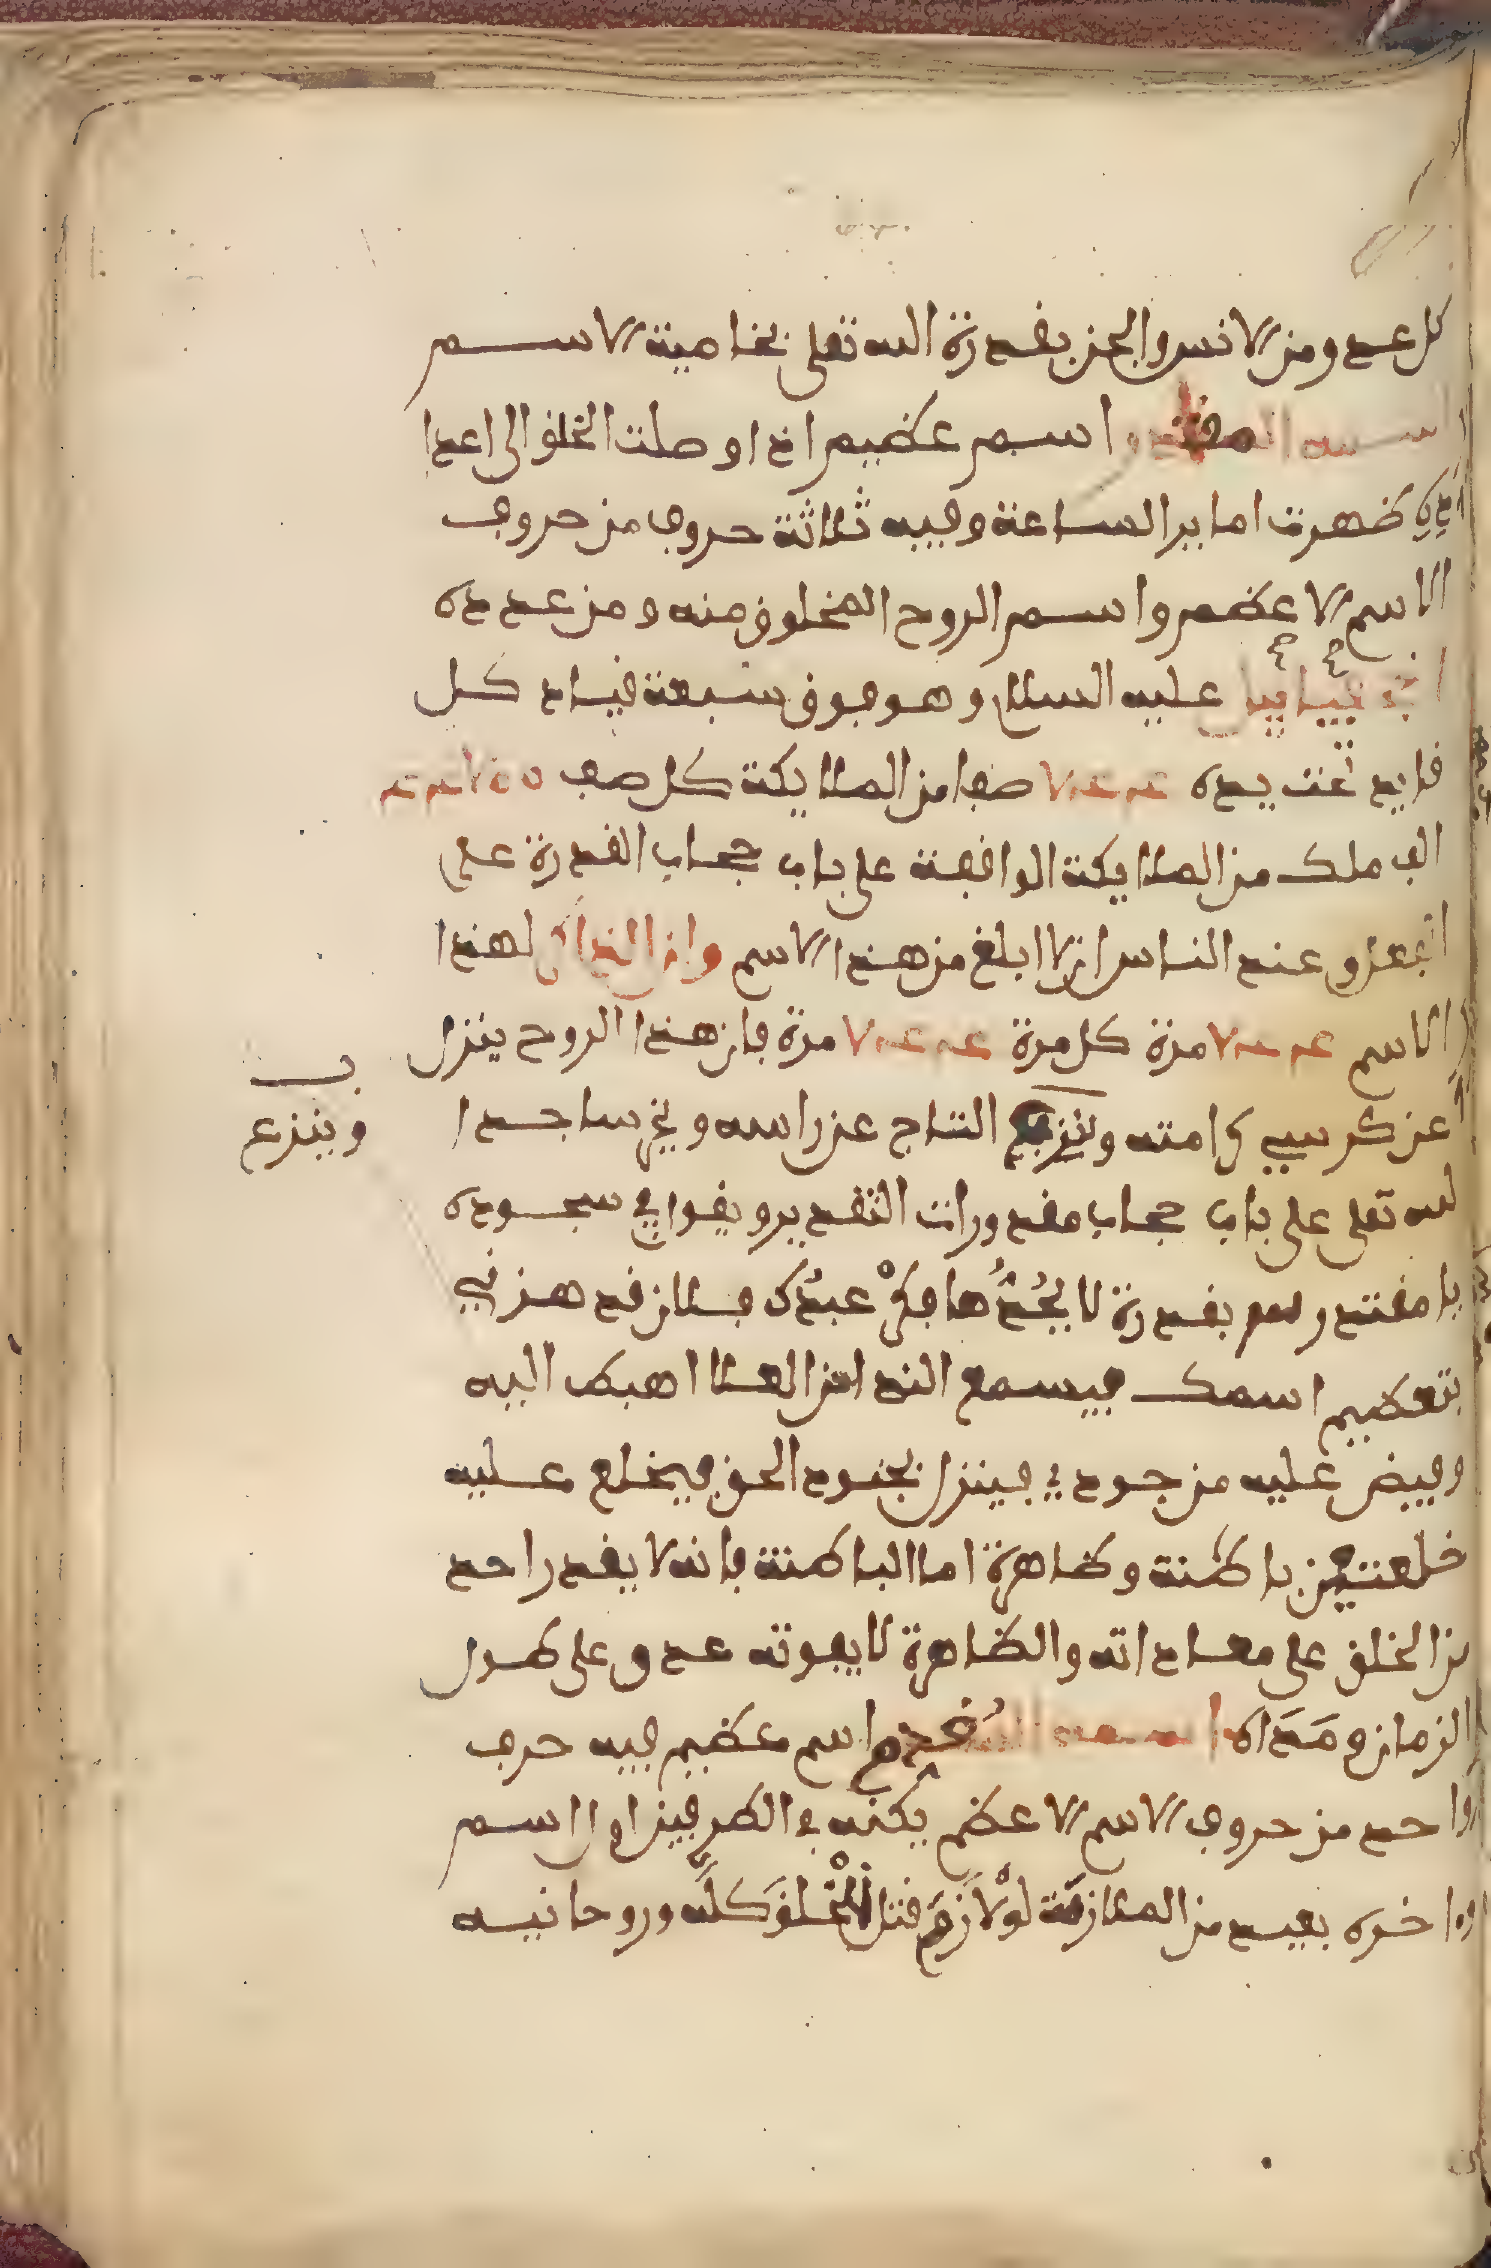 كل عدو من الانس والجن بقدرة الله تعلى بخاصية الاسم
مقتدر اسم عظيم اذا وصلت الخلق الى اعدا
ظهرت اما بر الساعة وفيه ثلاثة حروف من حروف
الاسم الاعظم واسم الروح المخلوق منه ومن عدده
عليه السلام وهو فوق سبعة قياد كل
قايد تحت يده صفا من الملايكة كل صف
الف ملك من الملايكة الواقفة على باب حجاب القدرة على
عند الناس ان لا ابلغ من هذا الاسم وان الذاكر لهذا
الاسم مرة كل مرة مرة فان هذا الروح ينزل
عن كرسي كرامته وينزع التاج عن راسه ويخر ساجدا
وينزع
لله تعلى على باب حجاب مقدورات التقدير ويقول في سجوده
يا مقتدر بقدرة لا يحدها فكر عبدك فلان قد هزني
بتعظيم اسمك فيسمع الندا من العلا اهبط اليه
وفيض عليه من جودي فينزل بجنود الحق فيخلع عليه
خلعتين باطنة وظاهرة اما الباطنة فانه لا يقدر احد
من الخلق على معاداته والظاهرة لا يفوته عدو على طول
الزمان ومداه اسم عظيم فيه حرف
واحد من حروف الاسم الاعظم يكنه في الطرفين اول اسم
واخره بعيد من الملازمة لو لازم قتل الخلق كله وروحانيه